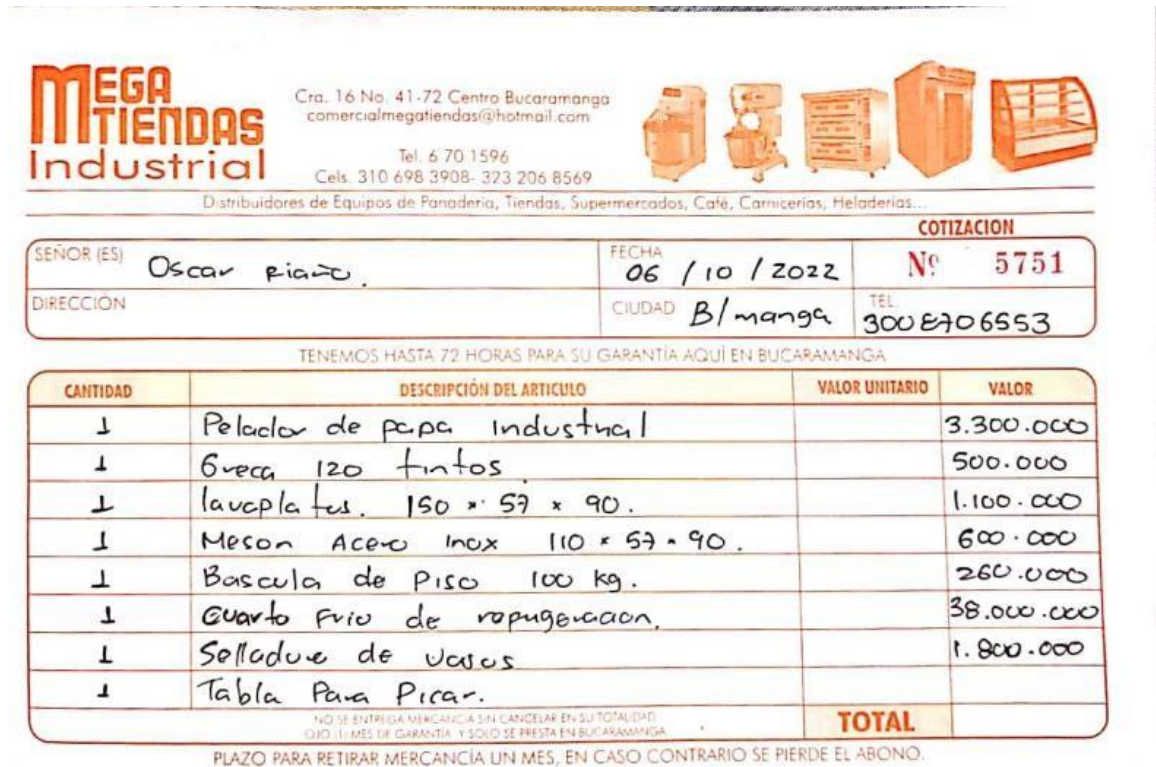 MEGA
TIENDAS
Industrial
Cra. 16 No. 41-72 Centro Bucaramanga
comercialmegatiendas@hotmail.com
Tel. 6 70 1596
Cels. 310 698 3908- 323 206 8569
Distribuidores de Equipos de Panadería, Tiendas, Supermercados, Café, Carnicerías, Heladerías...
COTIZACION
SEÑOR (ES) Oscar Riaño. FECHA 06 / 10 / 2022 Nº 5751
DIRECCIÓN CIUDAD B/manga TEL. 3008706553
TENEMOS HASTA 72 HORAS PARA SU GARANTÍA AQUÍ EN BUCARAMANGA
CANTIDAD DESCRIPCIÓN DEL ARTICULO VALOR UNITARIO VALOR
1 Pelador de papa industrial 3.300.000
1 Greca 120 tintos 500.000
1 lavaplatos. 150 × 57 × 90. 1.100.000
1 Meson Acero inox 110 × 57 × 90. 600.000
1 Bascula de Piso 100 kg. 260.000
1 Cuarto Frio de 38.000.000
1 Selladora de Vasos 1.800.000
1 Tabla Para Picar.
NO SE ENTREGA MERCANCIA SIN CANCELAR EN SU TOTALIDAD
OJO (1) MES DE GARANTÍA Y SOLO SE PRESTA EN BUCARAMANGA
TOTAL
PLAZO PARA RETIRAR MERCANCÍA UN MES, EN CASO CONTRARIO SE PIERDE EL ABONO.